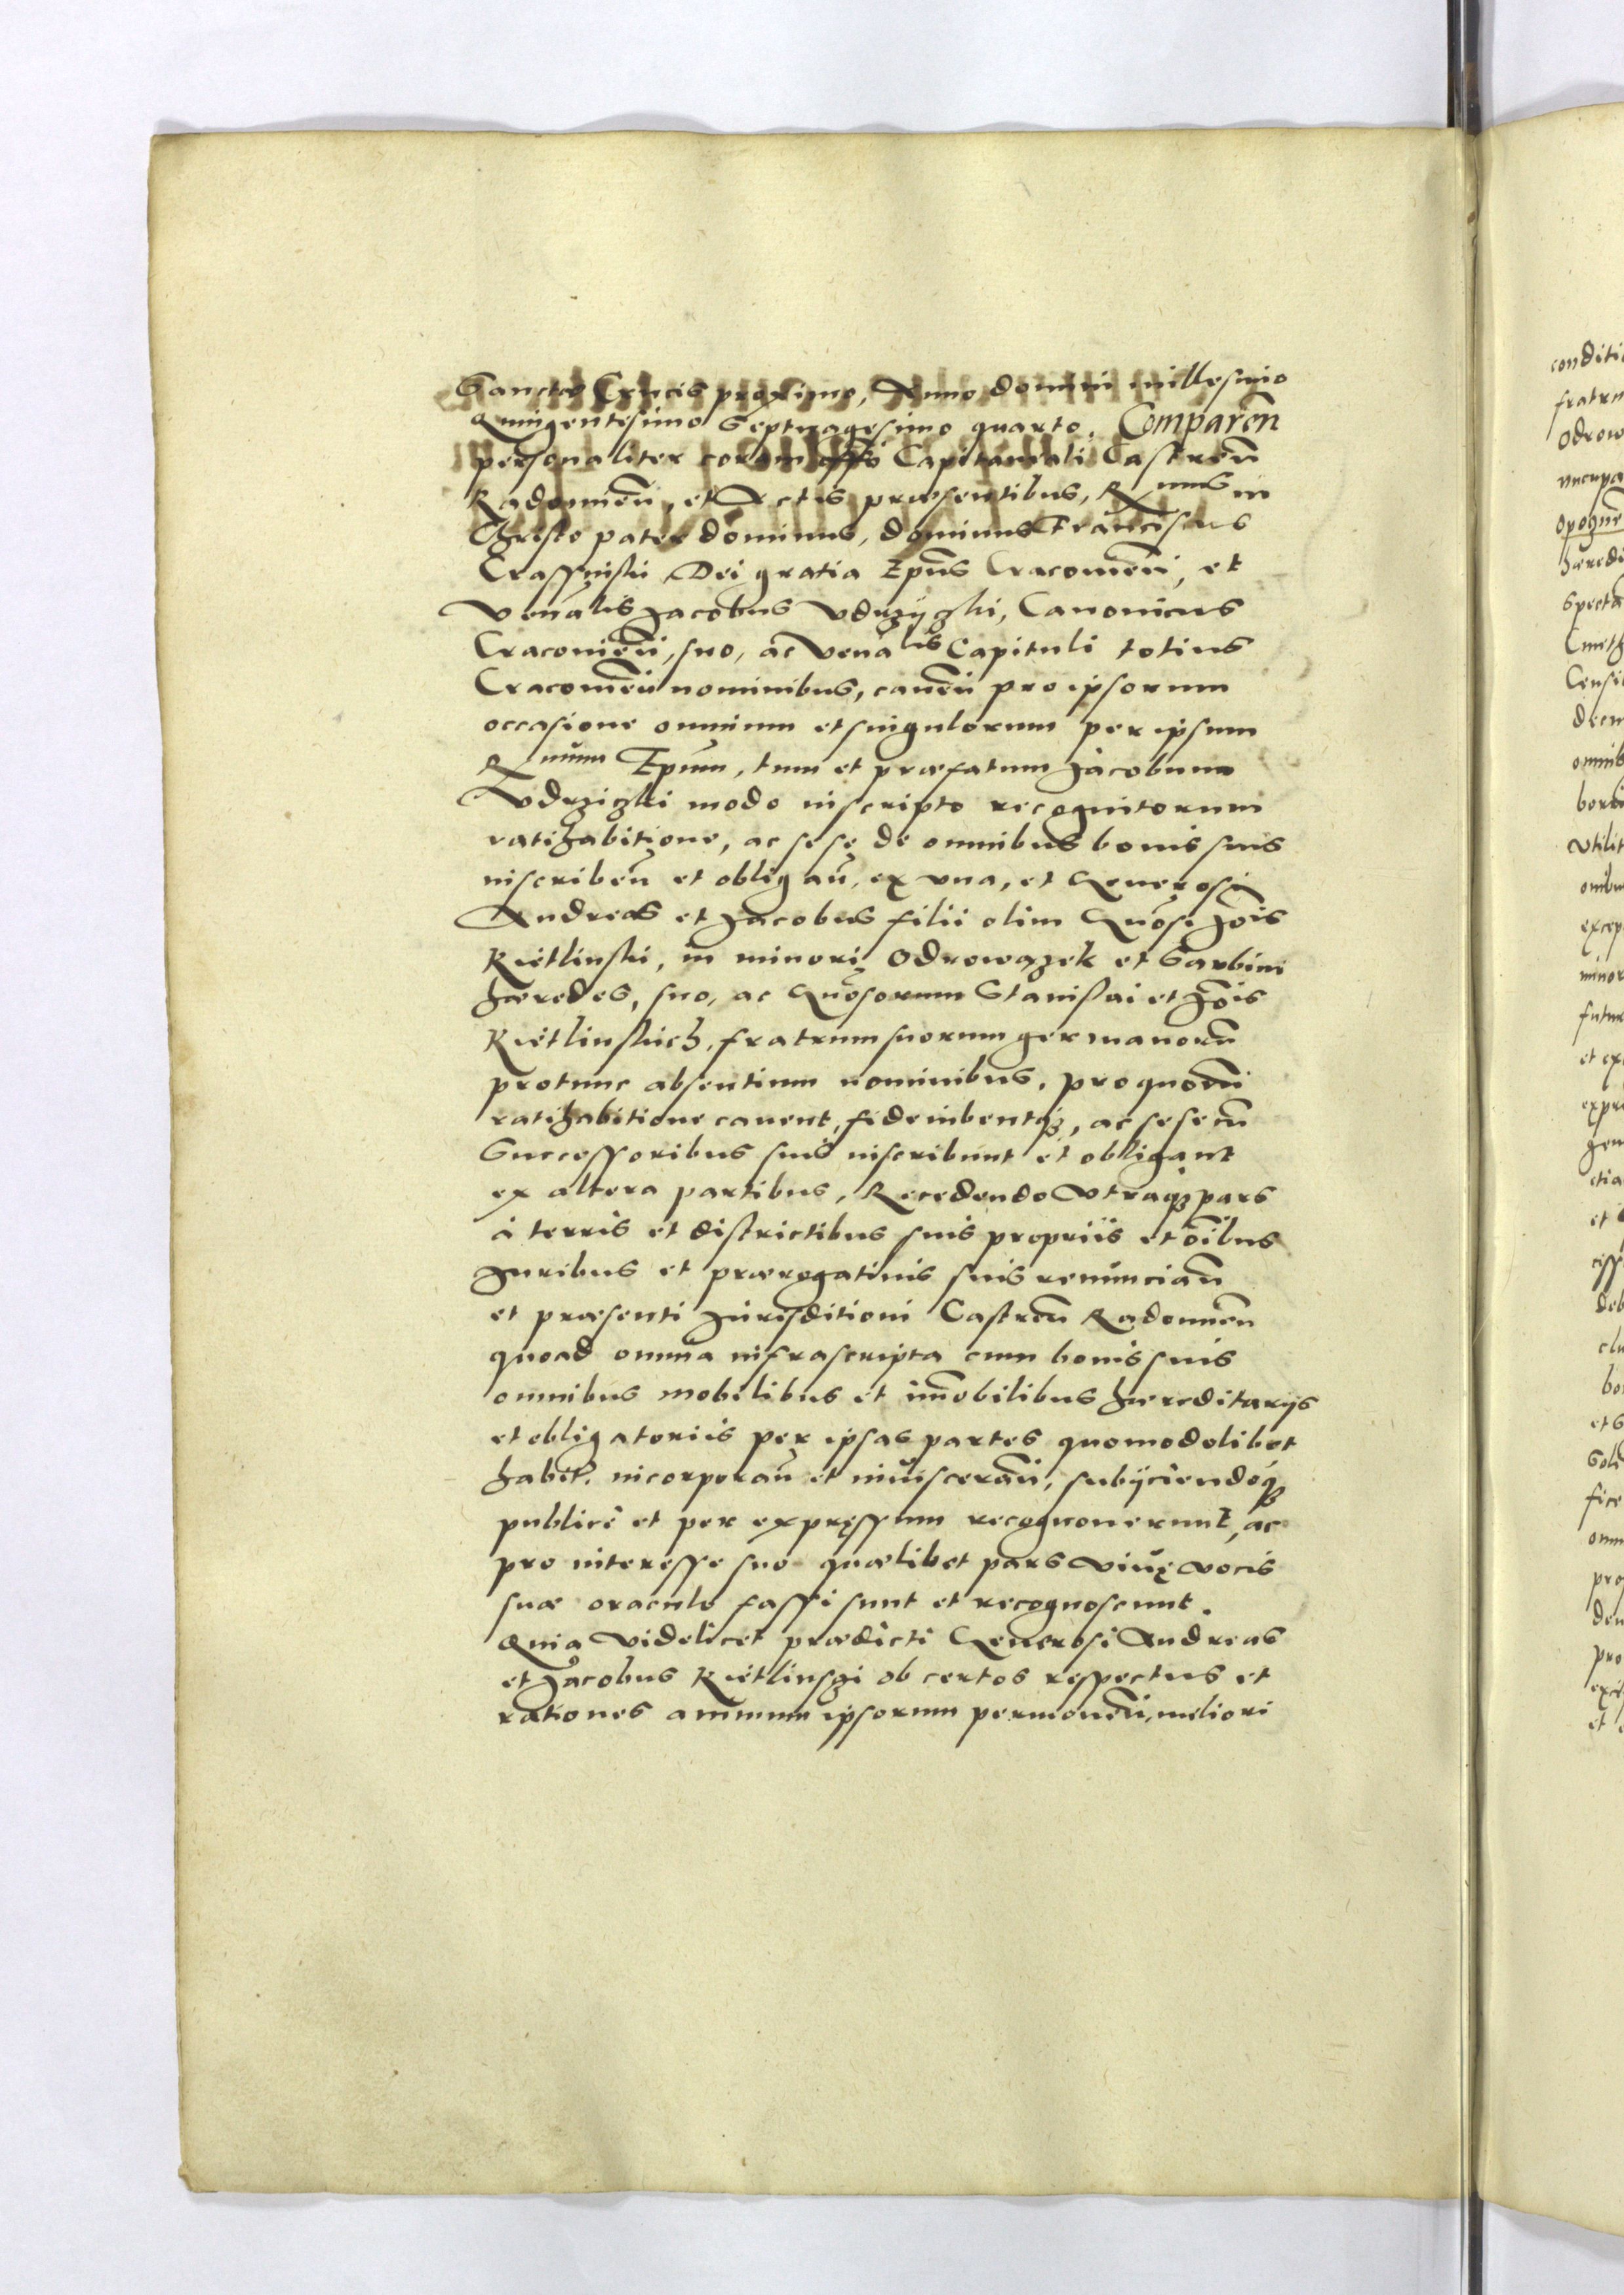 Sanctæ Crucis proximo, Anno domini millesimo
Quingentesimo Septuagesimo quarto. Comparen̄
personaliter coram offo Capitaneali Castren̄
Radomien̄, et Actis præsentibus, R mus in
Christo pater dominus, dominus Franciscus
Crassinski Dei gratia Ep̄us Cracovien̄, et
Vena lis Jacobus Vdrzÿczki, Canonicus
Cracovien̄, suo, ac Vena lis Capituli totius
Cracovien̄ nominibus, caven̄ pro ipsorum
occasione omnium et singulorum per ipsum
R mum Ep̄um, tum et præfatum Jacobum
Vdrziczki modo inscripto recognitorum
ratihabitione, ac sese de omnibus bonis suis
inscriben̄ et obligan̄, ex vna, et Generosi
Andreas et Jacobus filii olim Gn̄osi Jōis
Kietlinski, in minori Odrowązek et Garbini
hæredes, suo, ac Gn̄osorum Stanislai et Jōis
Kietlinskich, fratrum suorum germanorū
protunc absentium nominibus, pro quorū
ratihabitione cavent, fideiubentqȝ, ac sese cū
Successoribus suis inscribunt et obligant
ex altera partibus, Recedendo Vtraqȝ pars
à terris et districtibus suis propriis et oībus
Juribus et prærogativis suis renuncian̄
et præsenti Jurisditioni Castren̄ Radomien̄
quoad omnia infrascripta cum bonis suis
omnibus mobilibus et im̄obilibus hæreditariis
et obligatoriis per ipsas partes quomodolibet
habit. incorporan̄ et inviscerān, subijciendoqȝ
publicè et per expressum recognoverunt, ac
pro interesse suo quælibet pars vivę vocis
suæ oraculo fassi sunt et recognoscunt.
Quia videlicet prædicti Generosi Andreas
et Jacobus Kietlinszi ob certos respectus et
rationes animum ipsorum permoven̄, meliori